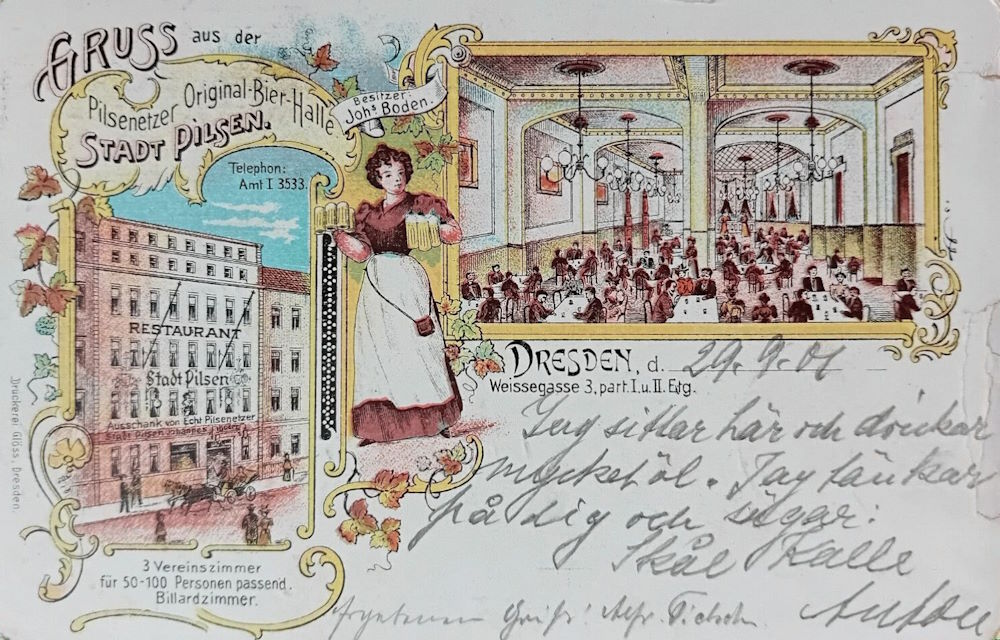 GRUSS aus der
Pilsenetzer Original-Bier-Halle
STADT PILSEN.
Besitzer:
Johs Boden.
Telephon:
Amt I 3533.
RESTAURANT
Stadt Pilsen
Ausschank von Echt Pilsenetzer
Druckerei Glöss, Dresden.
3 Vereinszimmer
für 50-100 Personen passend.
Billardzimmer.
DRESDEN, d. 29.9.01
Weissegasse 3, part. I. u. II. Etg.
Jag sitter här och dricker
mycket öl. Jag tänker
på dig och säger:
Skål Kalle
Anton
Ergebenen Gruß!